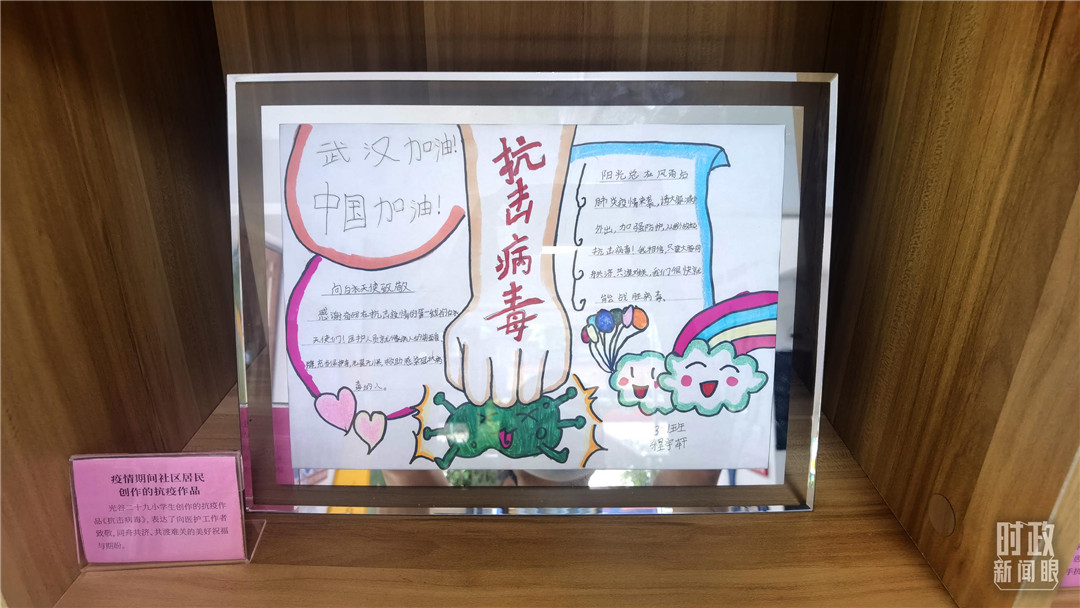 武汉加油!
中国加油!
抗击病毒
阳光总在风雨后
肺炎疫情来袭，请大家减少
外出，加强防护，
抗击病毒！我相信，只要大家同
舟共济，共渡难关，我们很快就
能战胜病毒。
向白衣天使致敬
感谢奋战在抗击疫情的第一线的白衣
天使们！医护人员
救助感染冠状病
毒的人。
程宇轩
疫情期间社区居民
创作的抗疫作品
光谷二十九小学生创作的抗疫作
品《抗击病毒》，表达了向医护工作者
致敬，同舟共济、共渡难关的美好祝福
与期盼。
时政
新闻眼